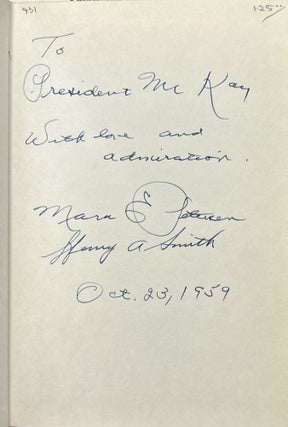 931
1.25
To
President Mc Kay
With love and
admiration.
Mark E Petersen
Henry A Smith
Oct. 23, 1959